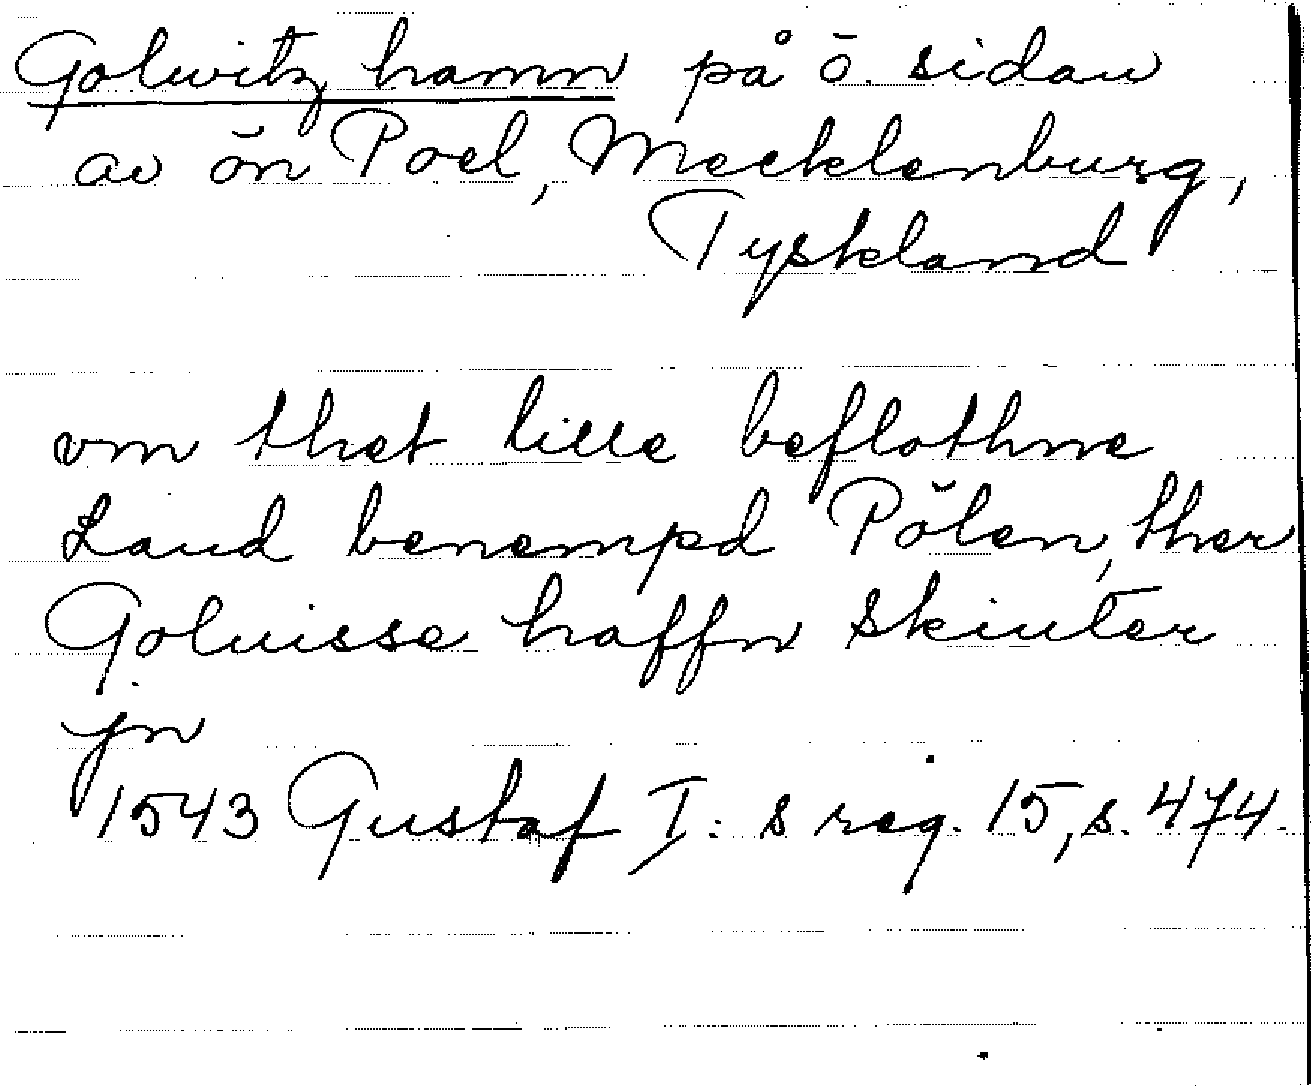 Golwitz hamn på ö. sidan
av ön Poel, Mecklenburg,
Tyskland
vm thet lille beflothne
Land benempd Pölen, ther
Goluisse haffn skiuter
jn
1543 Gustaf I: s reg. 15, s. 474.